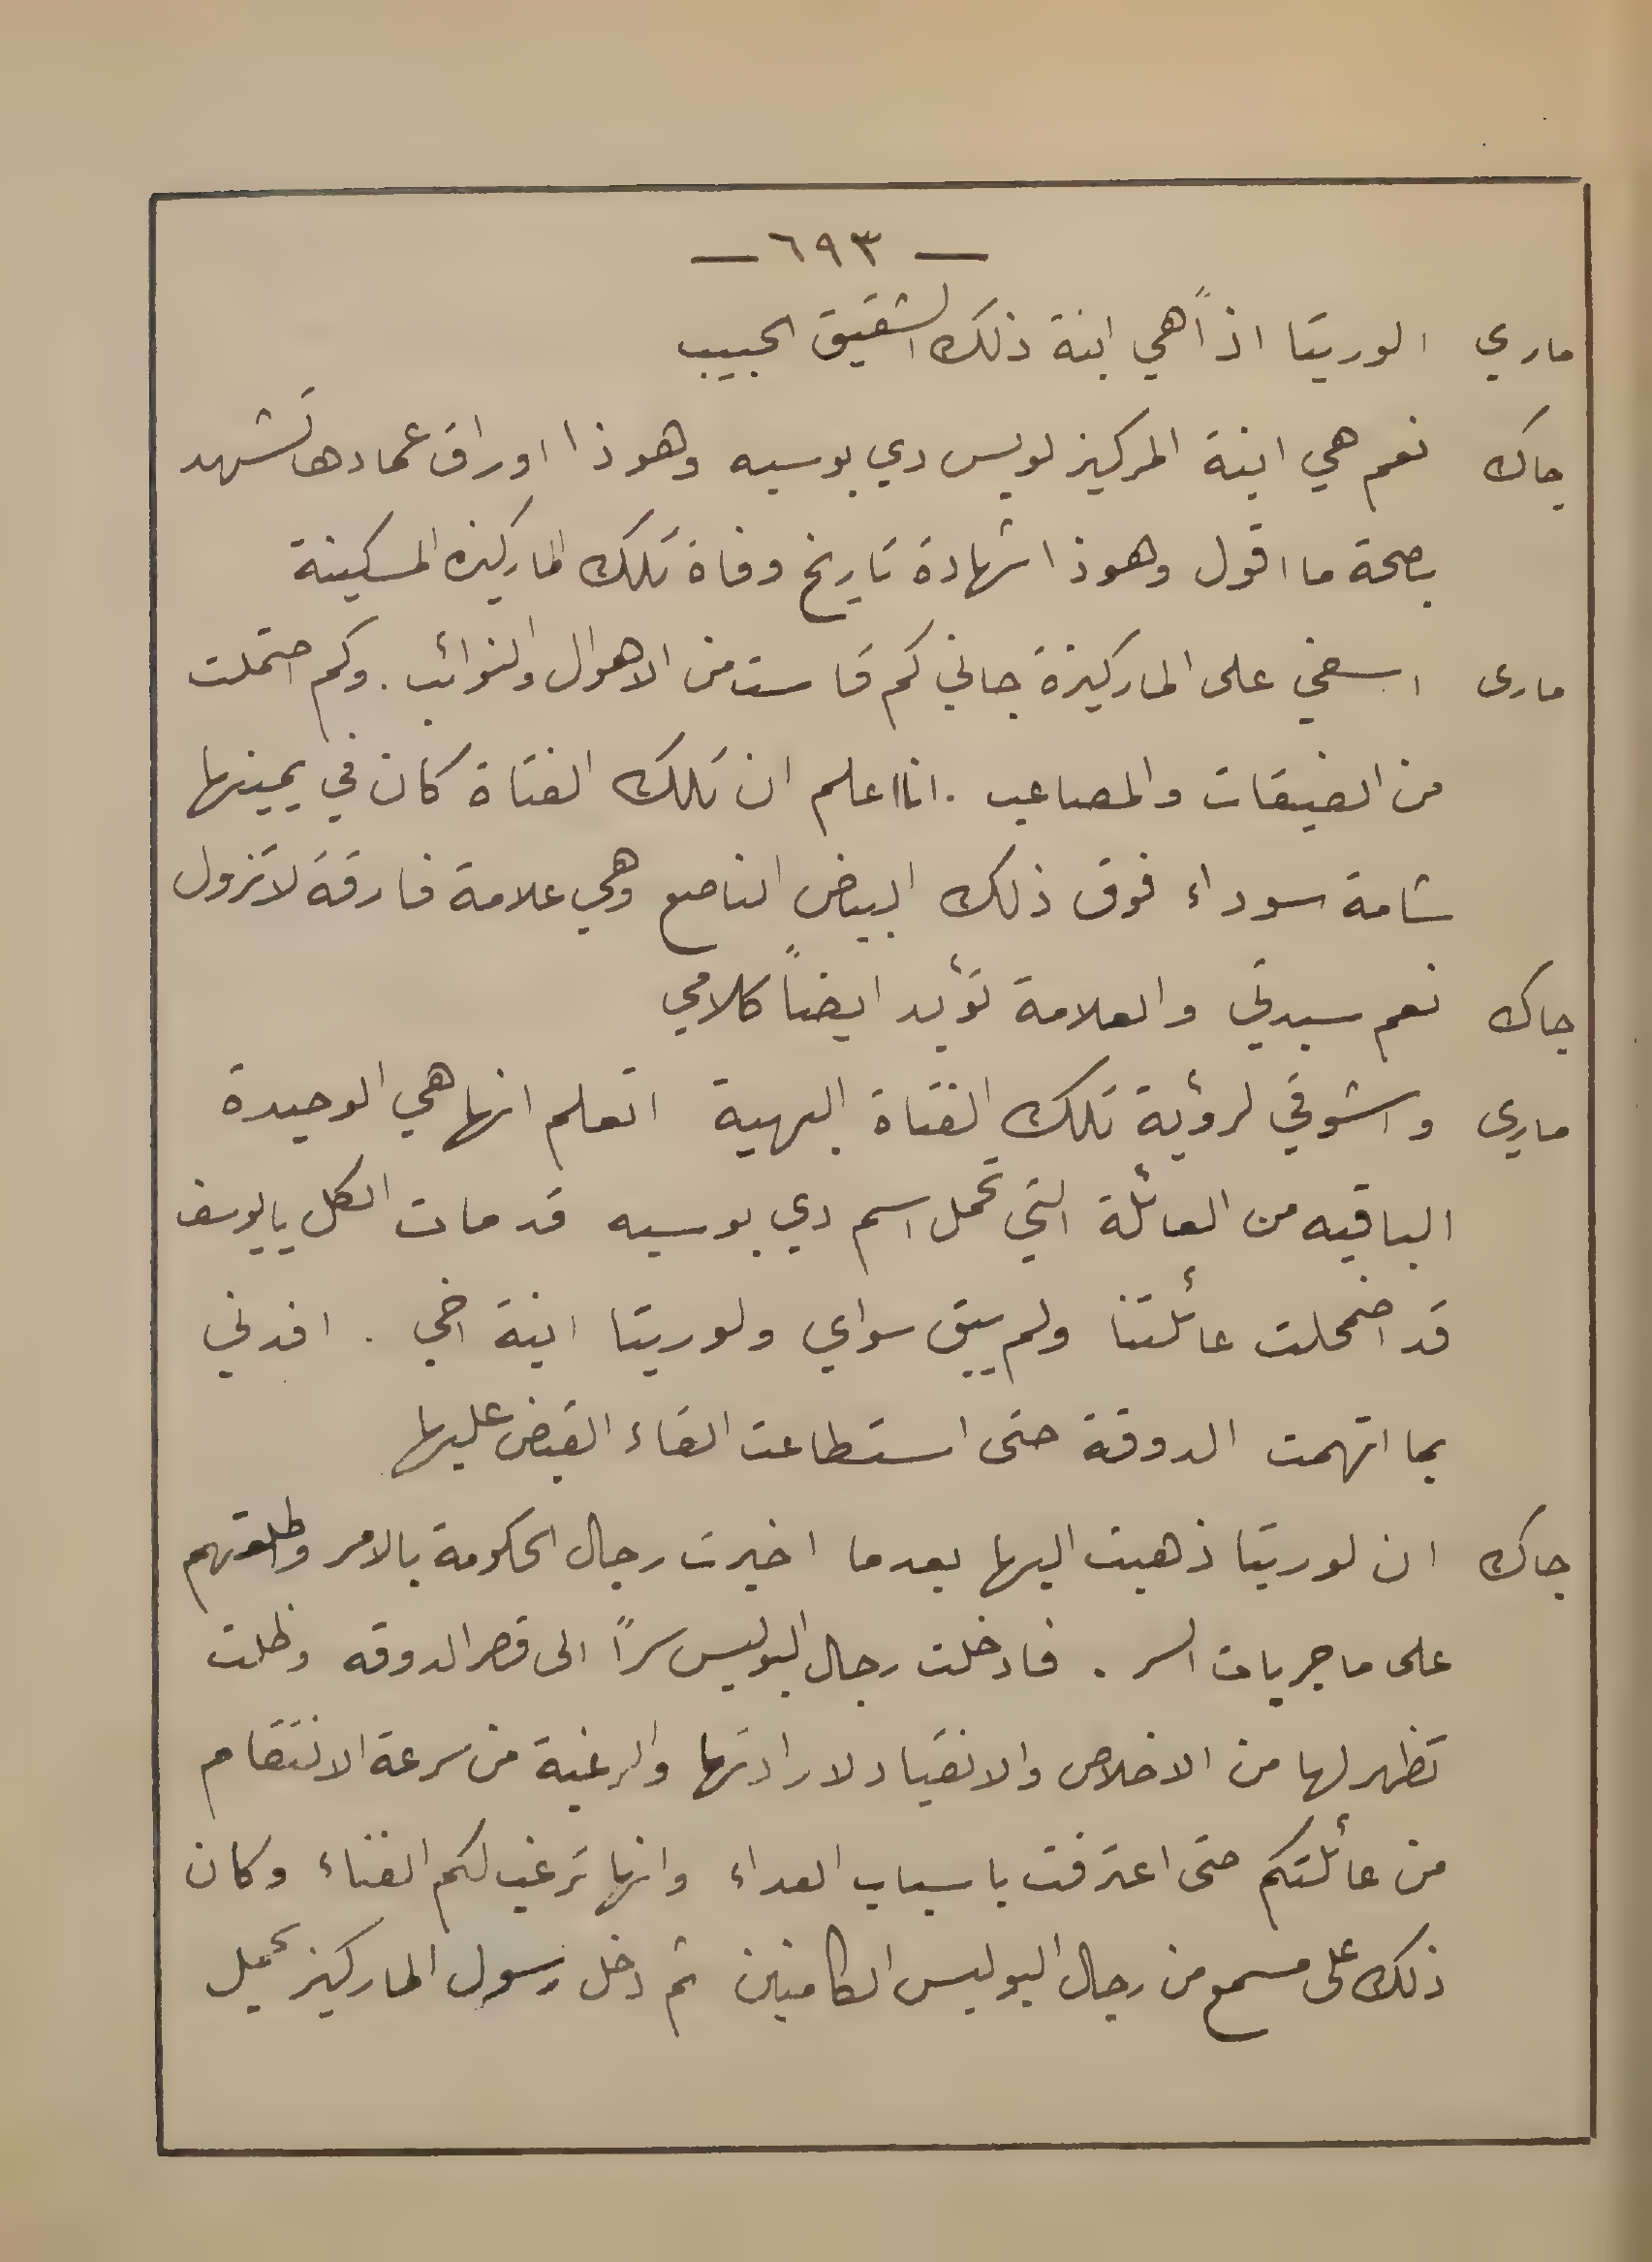 — ٦٩٣ —
ماري الوريتا اذاً هي ابنة ذلك الشقيق الحبيب
جاك نعم هي ابنة المركيز لويس دي بوسيه وهوذا اوراق عمادها تشهد
بصحة ما اقول وهوذا شهادة تاريخ وفاة تلك الماركيزه المسكينة
مارى اسفي على الماركيزة جاني كم قاست من الاهوال والنوائب . وكم احتملت
من الضيقات والمصاعب . انا اعلم ان تلك الفتاة كان في يمينها
شامة سوداء فوق ذلك البياض الناصع وهي علامة فارقة لا تزول
جاك نعم سيدتي والعلامة تؤيد ايضاً كلامي
ماري واشوقي لرؤية تلك الفتاة البهية اتعلم انها هي الوحيدة
الباقيه من العائلة التي تحمل اسم دي بوسيه قد مات الكل يايوسف
قد اضمحلت عائلتنا ولم يبق سواي ولوريتا ابنة اخي . افدني
بما اتهمت الدوقة حتى استطاعت القاء القبض عليها
جاك ان لوريتا ذهبت اليها بعدما اخبرت رجال الحكومة بالامر واطلعتهم
على ماجريات السر . فادخلت رجال البوليس سراً الى قصر الدوقه وظلت
تظهر لها من الاخلاص والانقياد لارادتها والرغبة من سرعة الانتقام
من عائلتكم حتى اعترفت باسباب العداء وانها ترغب لكم الفناء وكان
ذلك على مسمع من رجال البوليس الكامنين ثم دخل رسول الماركيز يحمل